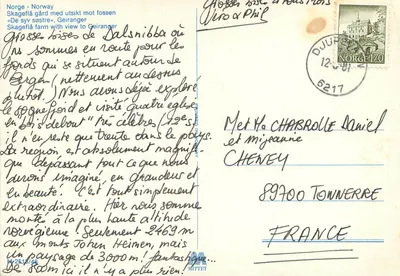 Norge - Norway
Skagefla gård med utsikt mot fossen
«De syv søstre», Geiranger
Skageflå farm with view to Geiranger
Grosses bises de Dalsnibba où
ns sommes en route pour les
fjords qui se situent autour de
Bergen (nettement au dessus
plutôt). Nous avons déjà exploré
le Sognefjord et visité quatre églises
en bois debout très célèbres (12e s)
il n'en reste que trente dans le pays.
La région est absolument magnifi-
que dépassant tout ce que nous
avions imaginé, en grandeur et
en beauté. C'est tout simplement
extraordinaire. Hier nous sommes
montés à la plus haute altitude
norvégienne seulement 2469 m
aux monts Jotun Heimen, mais
un paysage de 3000 m! fantastique...
ici il n'y a plus rien!
Grosses bises à vous trois
Véro & Phil
NORGE 170
6217
Met Me CHABROLLE Daniel
et Migeanne
CHENEY
89700 TONNERRE
FRANCE
MITTET